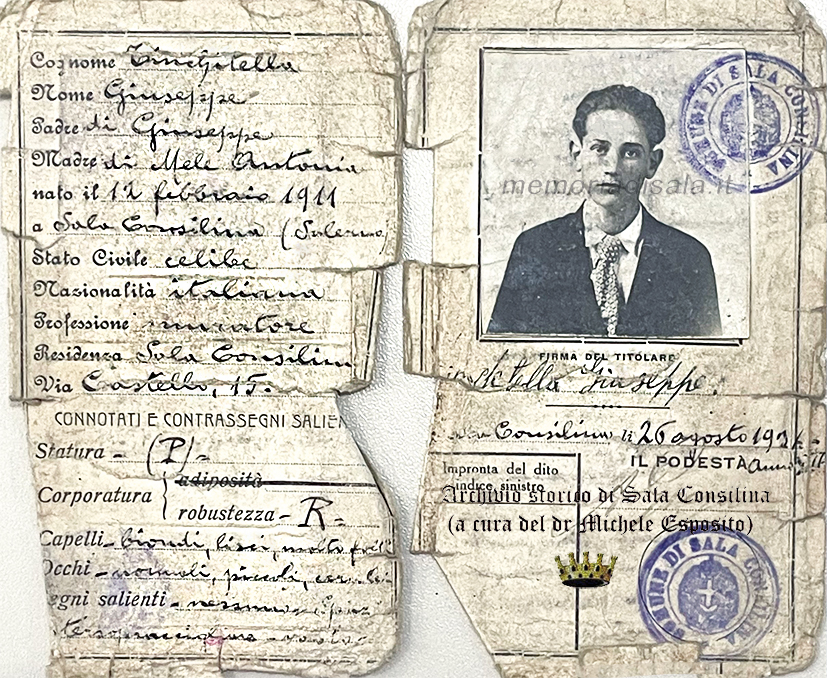 Cognome Tinchitella
Nome Giuseppe
Padre di Giuseppe
Madre di Mele Antonia
nato il 12 febbraio 1911
a Sala Consilina (Salerno
Stato Civile celibe
Nazionalità italiana
Professione muratore
Residenza Sala Consilin
Via Castello, 15.
CONNOTATI E CONTRASSEGNI SALIEN
Statura - (P) -
Corporatura adiposità
robustezza - R -
Capelli - biondi, lisci, molto
Occhi - normali, piccoli,
egni salienti -
COMUNE DI SALA CONSILINA
memoriadisala.it
FIRMA DEL TITOLARE
Giuseppe.
Consilina li 26 agosto 193
IL PODESTÀ
Impronta del dito
indice sinistro
Archivio storico di Sala Consilina
(a cura del dr Michele Esposito)
COMUNE DI SALA CONSILINA